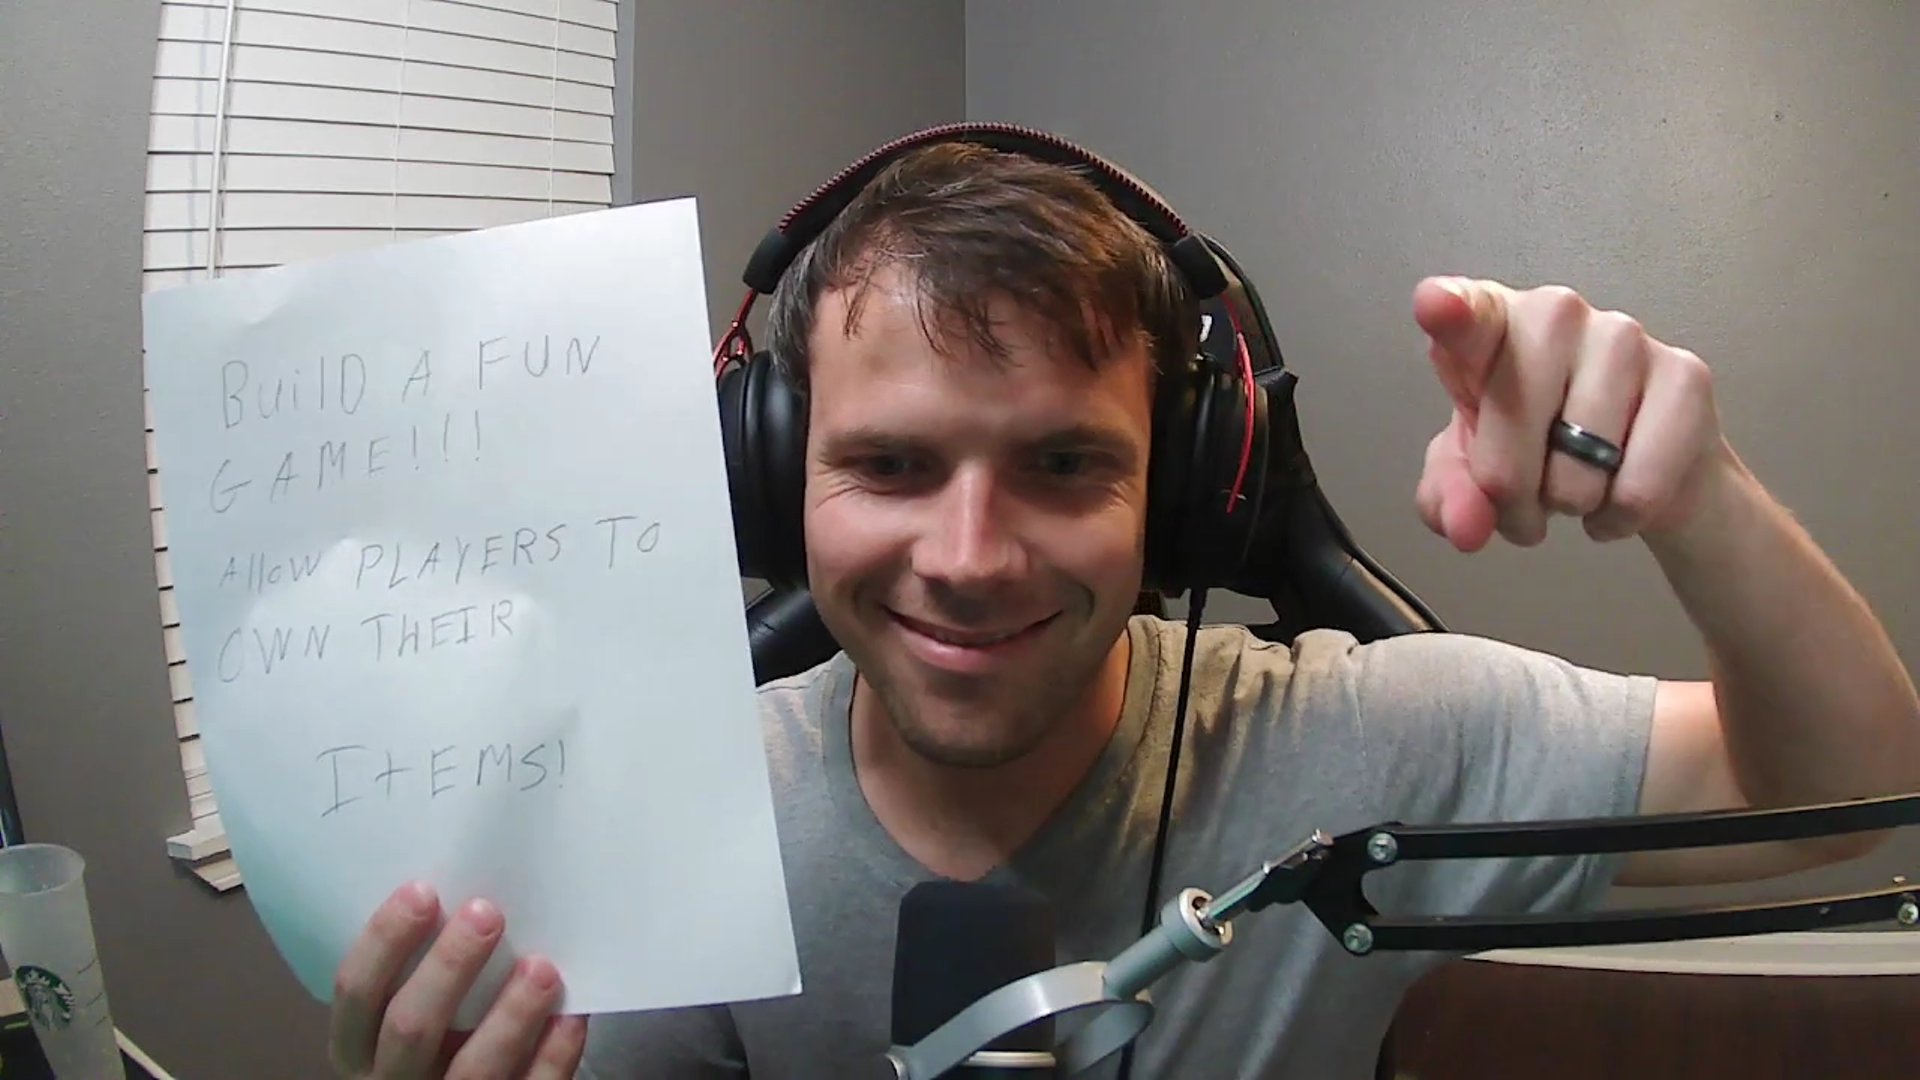 BuilD A FUN
GAME!!!
Allow PLAYERS TO
OWN THEIR
ItEMS!